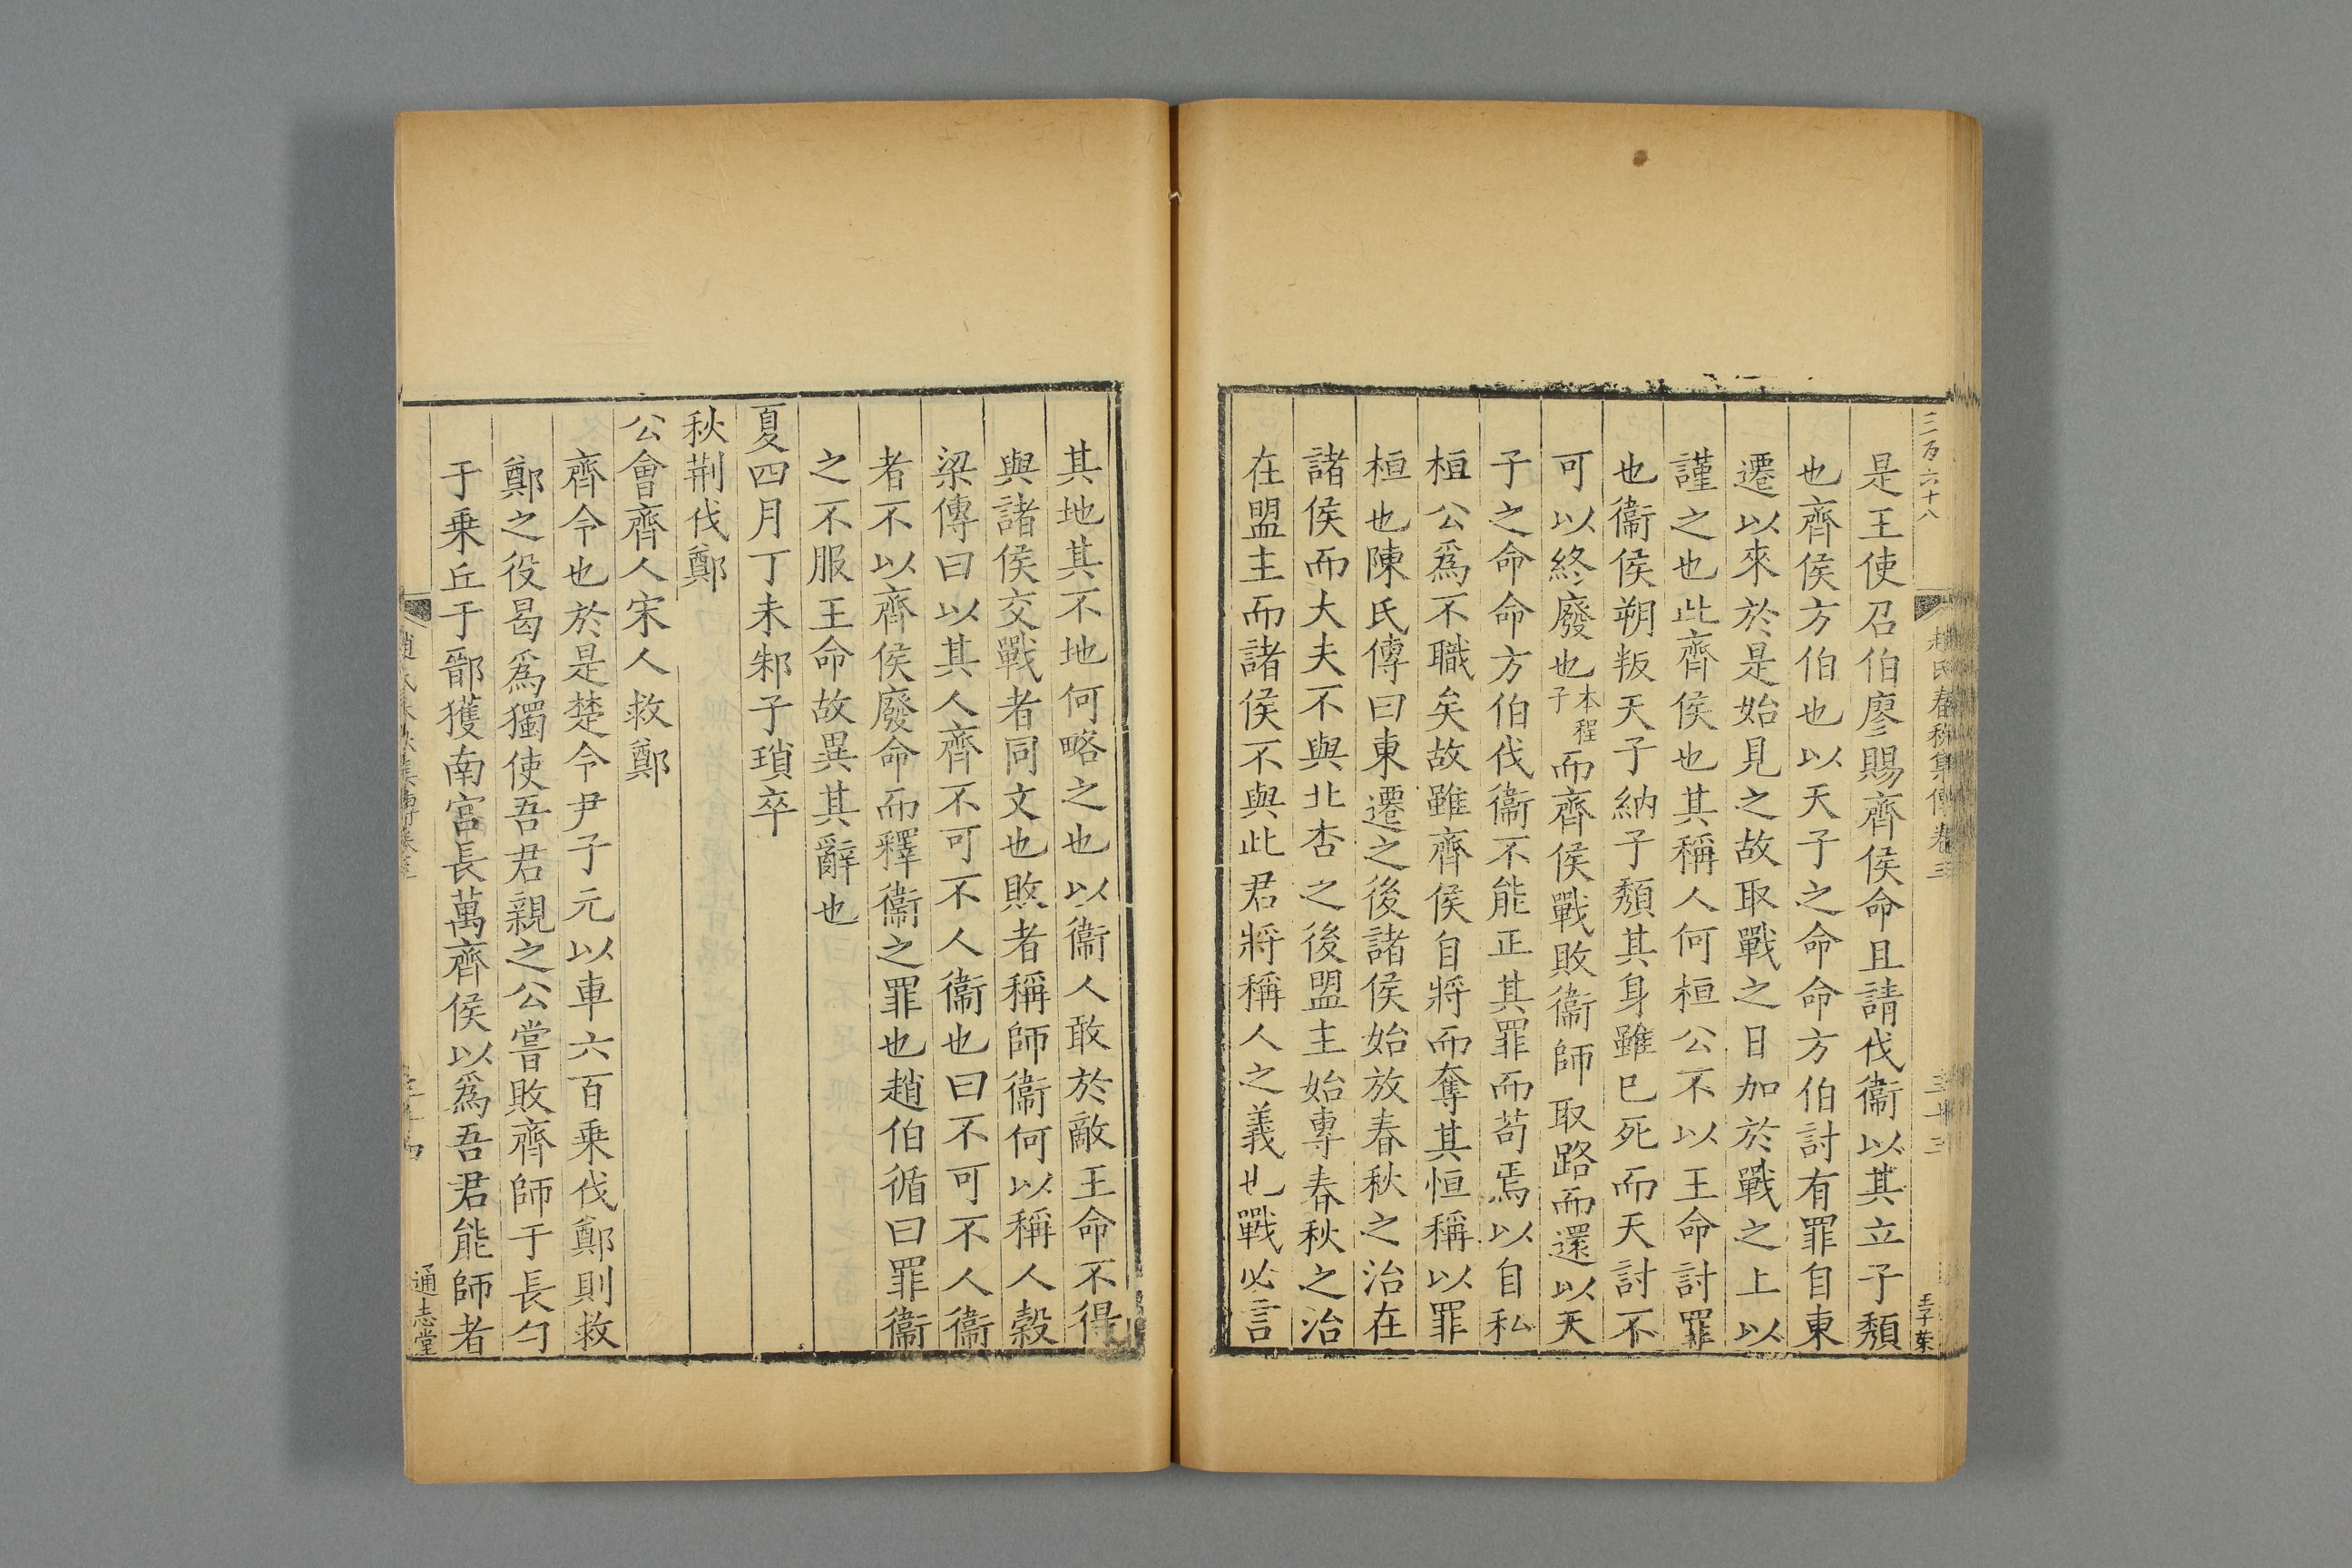 三百六十八
趙氏春秋集傳卷三
三十三
王子葉
是王使召伯廖賜齊侯命且請伐衞以其立子頽
也齊侯方伯也以天子之命命方伯討有罪自東
遷以來於是始見之故取戰之日加於戰之上以
謹之也此齊侯也其稱人何桓公不以王命討罪
也衞侯朔叛天子納子頽其身雖巳死而天討不
可以終廢也本程子而齊侯戰敗衞師取路而還以天
子之命命方伯伐衞不能正其罪而苟焉以自私
桓公爲不職矣故雖齊侯自將而奪其恒稱以罪
桓也陳氏傳曰東遷之後諸侯始放春秋之治在
諸侯而大夫不與北杏之後盟主始專春秋之治
在盟主而諸侯不與此君將稱人之義也戰必言
其地其不地何略之也以衞人敢於敵王命不得
與諸侯交戰者同文也敗者稱師衞何以稱人榖
梁傳曰以其人齊不可不人衞也曰不可不人衞
者不以齊侯廢命而釋衞之罪也趙伯循曰罪衞
之不服王命故異其辭也
夏四月丁未邾子瑣卒
秋荆伐鄭
公會齊人宋人救鄭
齊令也於是楚令尹子元以車六百乘伐鄭則救
鄭之役曷爲獨使吾君親之公嘗敗齊師于長勺
于乘丘于鄑獲南宮長萬齊侯以爲吾君能師者
通志堂